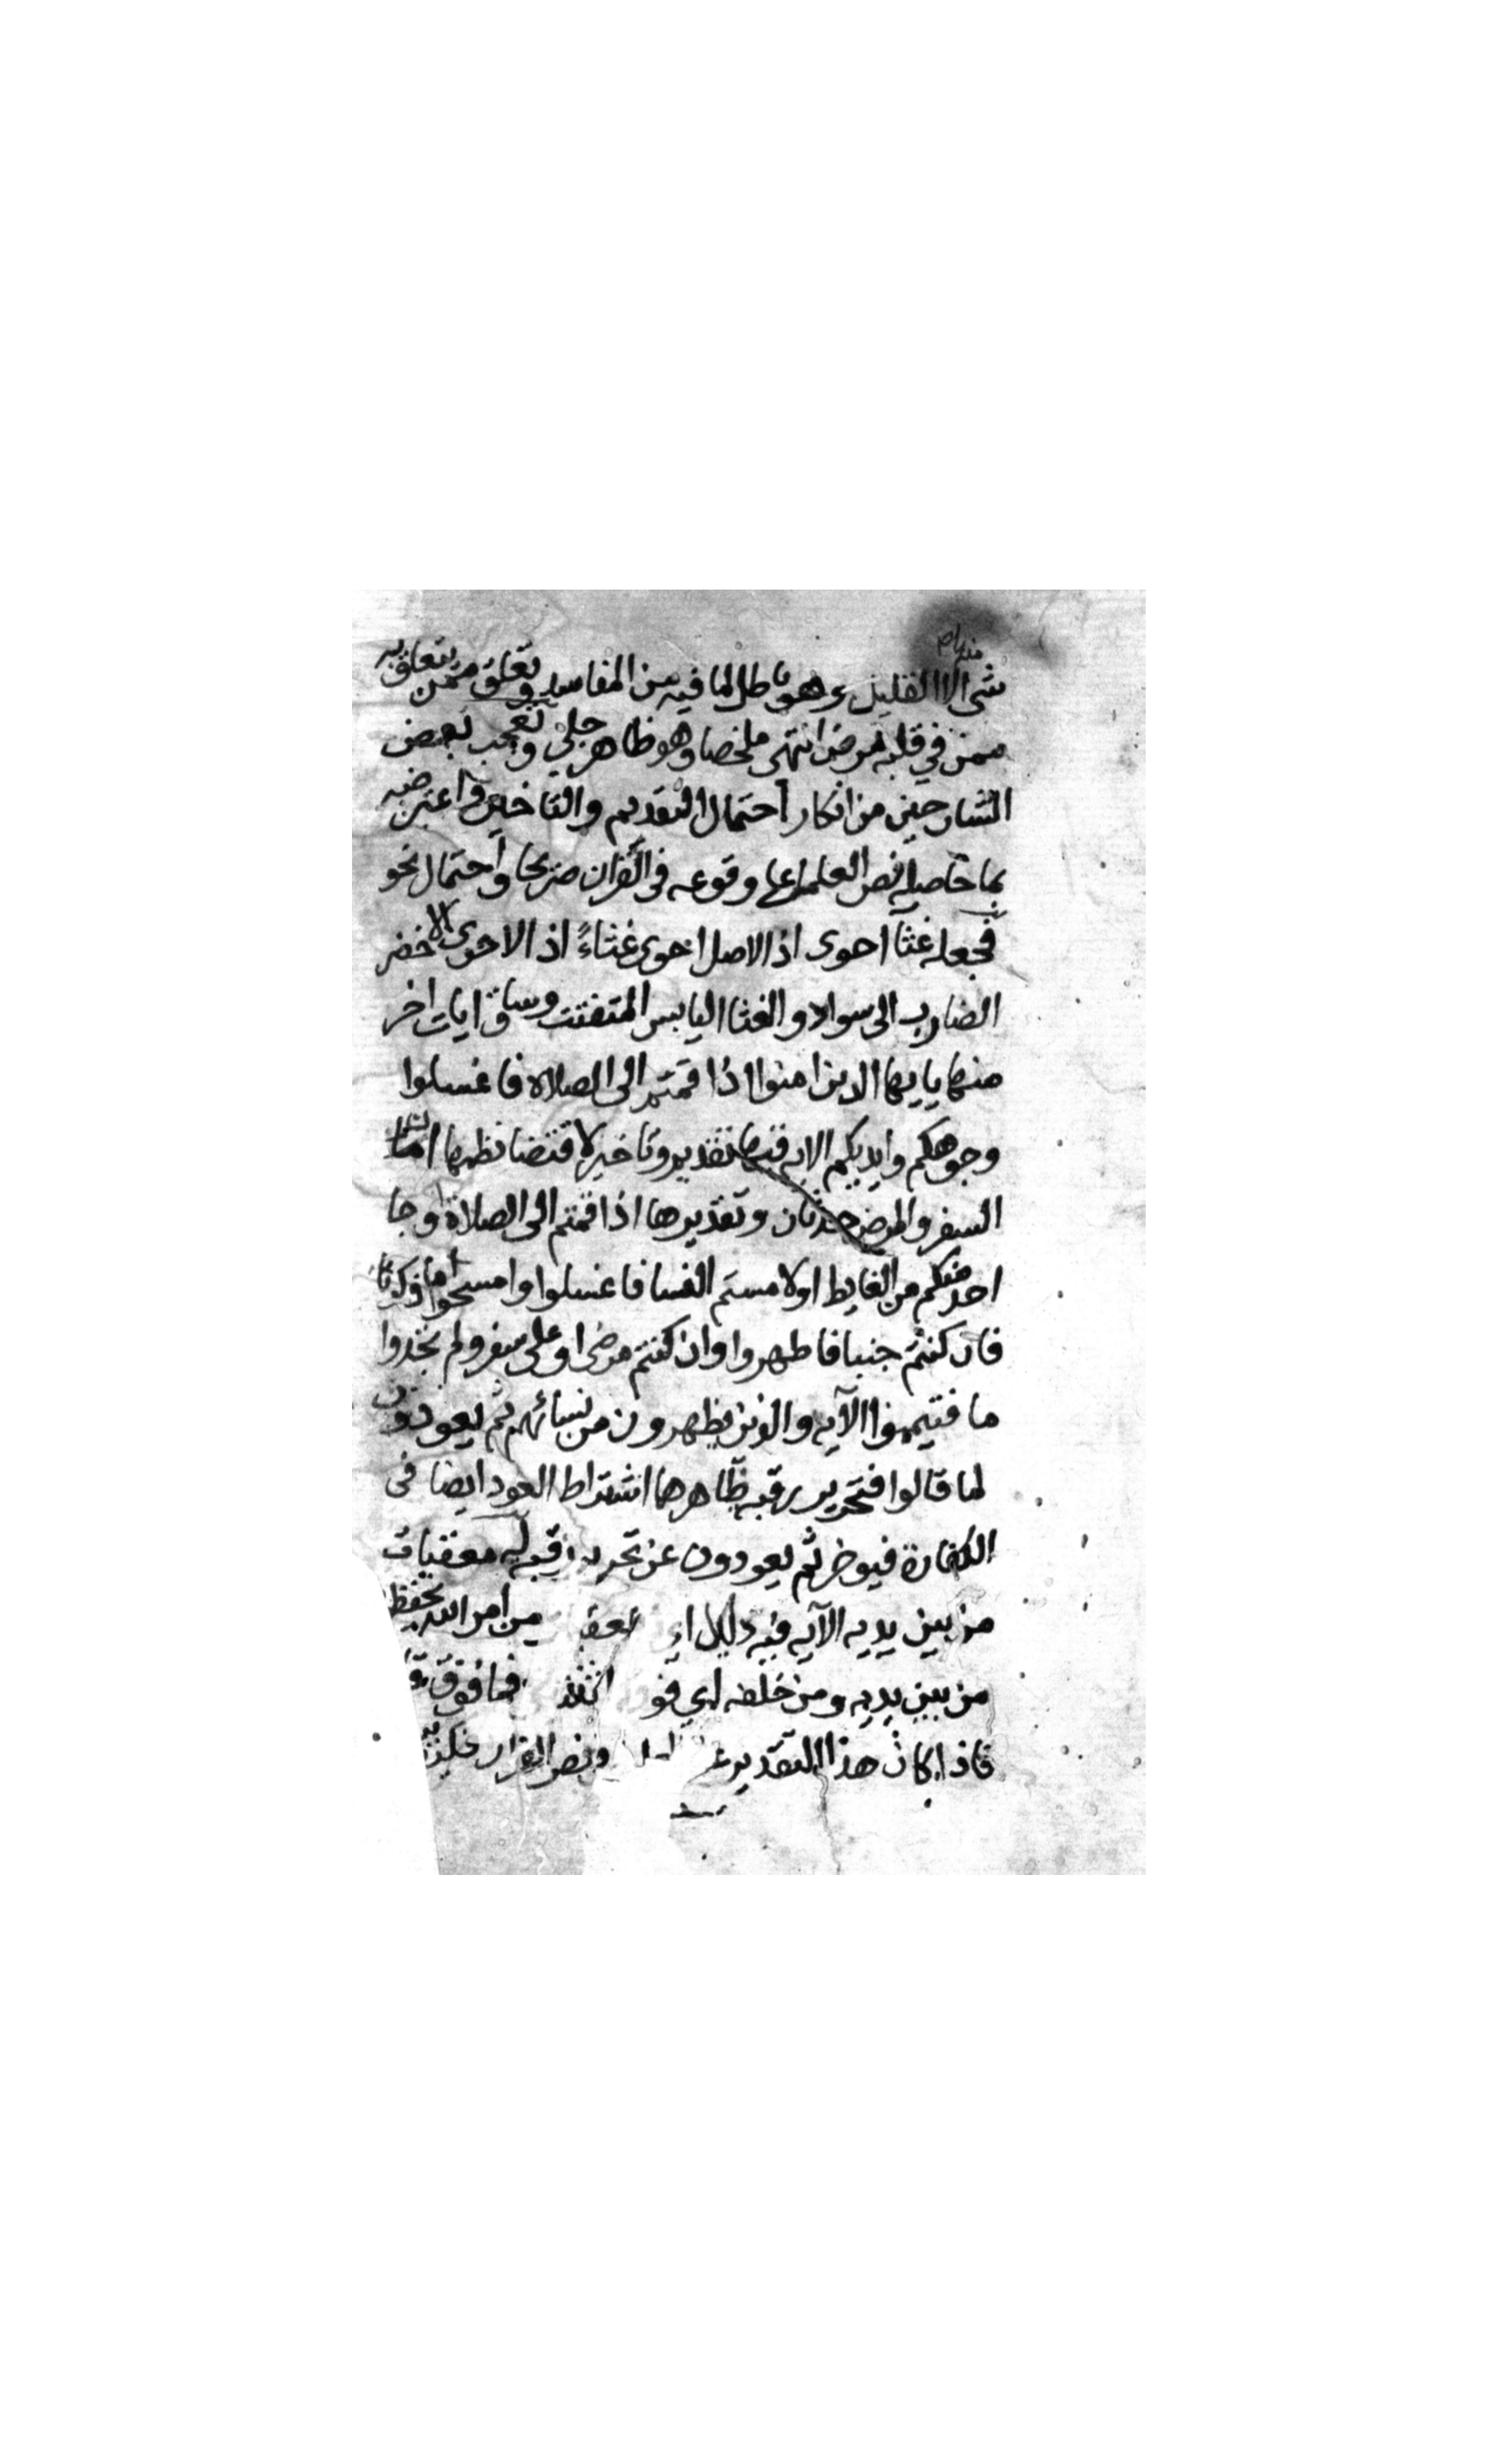 شى الا القليل وهو باطل لما فيه من المفاسد وتعلق من يتعلق به
ممن في قلبه مرض انتهى ملخصا وهو ظاهر جلي وتعجب بعض
الشارحين من انكار احتمال التقديم والتاخير واعترضه
بما حاصله نص العلما علي وقوعه في القران صريحا واحتمال نحو
فجعله غثا احوى اذ الاصل احوى غثاءً اذ الاحوى الاخضر
الضارب الى سواد والغثا اليابس المتفتت وساق ايات اخر
منها يايها الدين امنوا اذا قمتم الى الصلاه فاغسلوا
وجوهكم وايديكم الايه ففيها تقديم وتاخير لاقتضا نظمها ان
السفر والمرض حدثان وتقديرها اذا قمتم الى الصلاة او جا
احد منكم من الغايط او لامستم النسا فاغسلوا وامسحوا ما ذكرنا
فان كنتم جنبا فاطهروا وان كنتم مرضى او على سفر ولم تجدوا
ما فتيمموا الآيه والذين يظهرون من نسائهم ثم يعودون
لما قالوا فتحرير رقبه ظاهرها اشتراط العود ايضا في
الكفارة فيوخر ثم يعودون عن تحرير رقبه له معقبات
من بين يديه الآيه فيه دليل اي من امر الله يحفظ
من بين يديه ومن خلفه اي فو فما فوق
فاذا كان هذا التقدير ونص القران